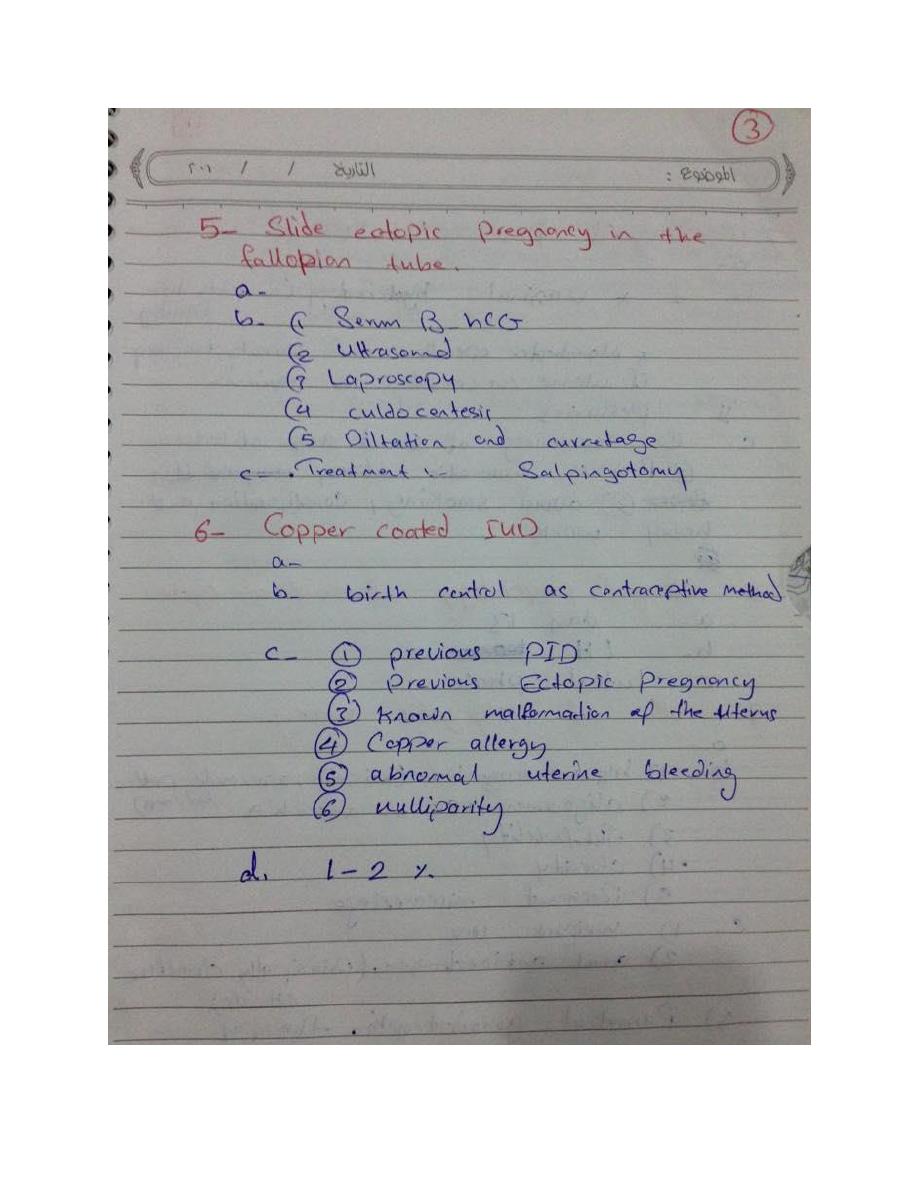 3
الموضوع : التاريخ / / ٢٠١
5- Slide ectopic pregnancy in the
fallopian tube.
a-
b- (1 Serum B-hCG
(2 Ultrasound
(3 Laproscopy
(4 culdocentesis
(5 Diltation and curretage
c- Treatment :- Salpingotomy
6- Copper coated IUD
a-
b- birth control as contraceptive method
c- ① previous PID
② Previous Ectopic Pregnancy
③ Known malformation of the Uterus
④ Copper allergy
⑤ abnormal uterine bleeding
⑥ nulliparity
d. 1-2 %